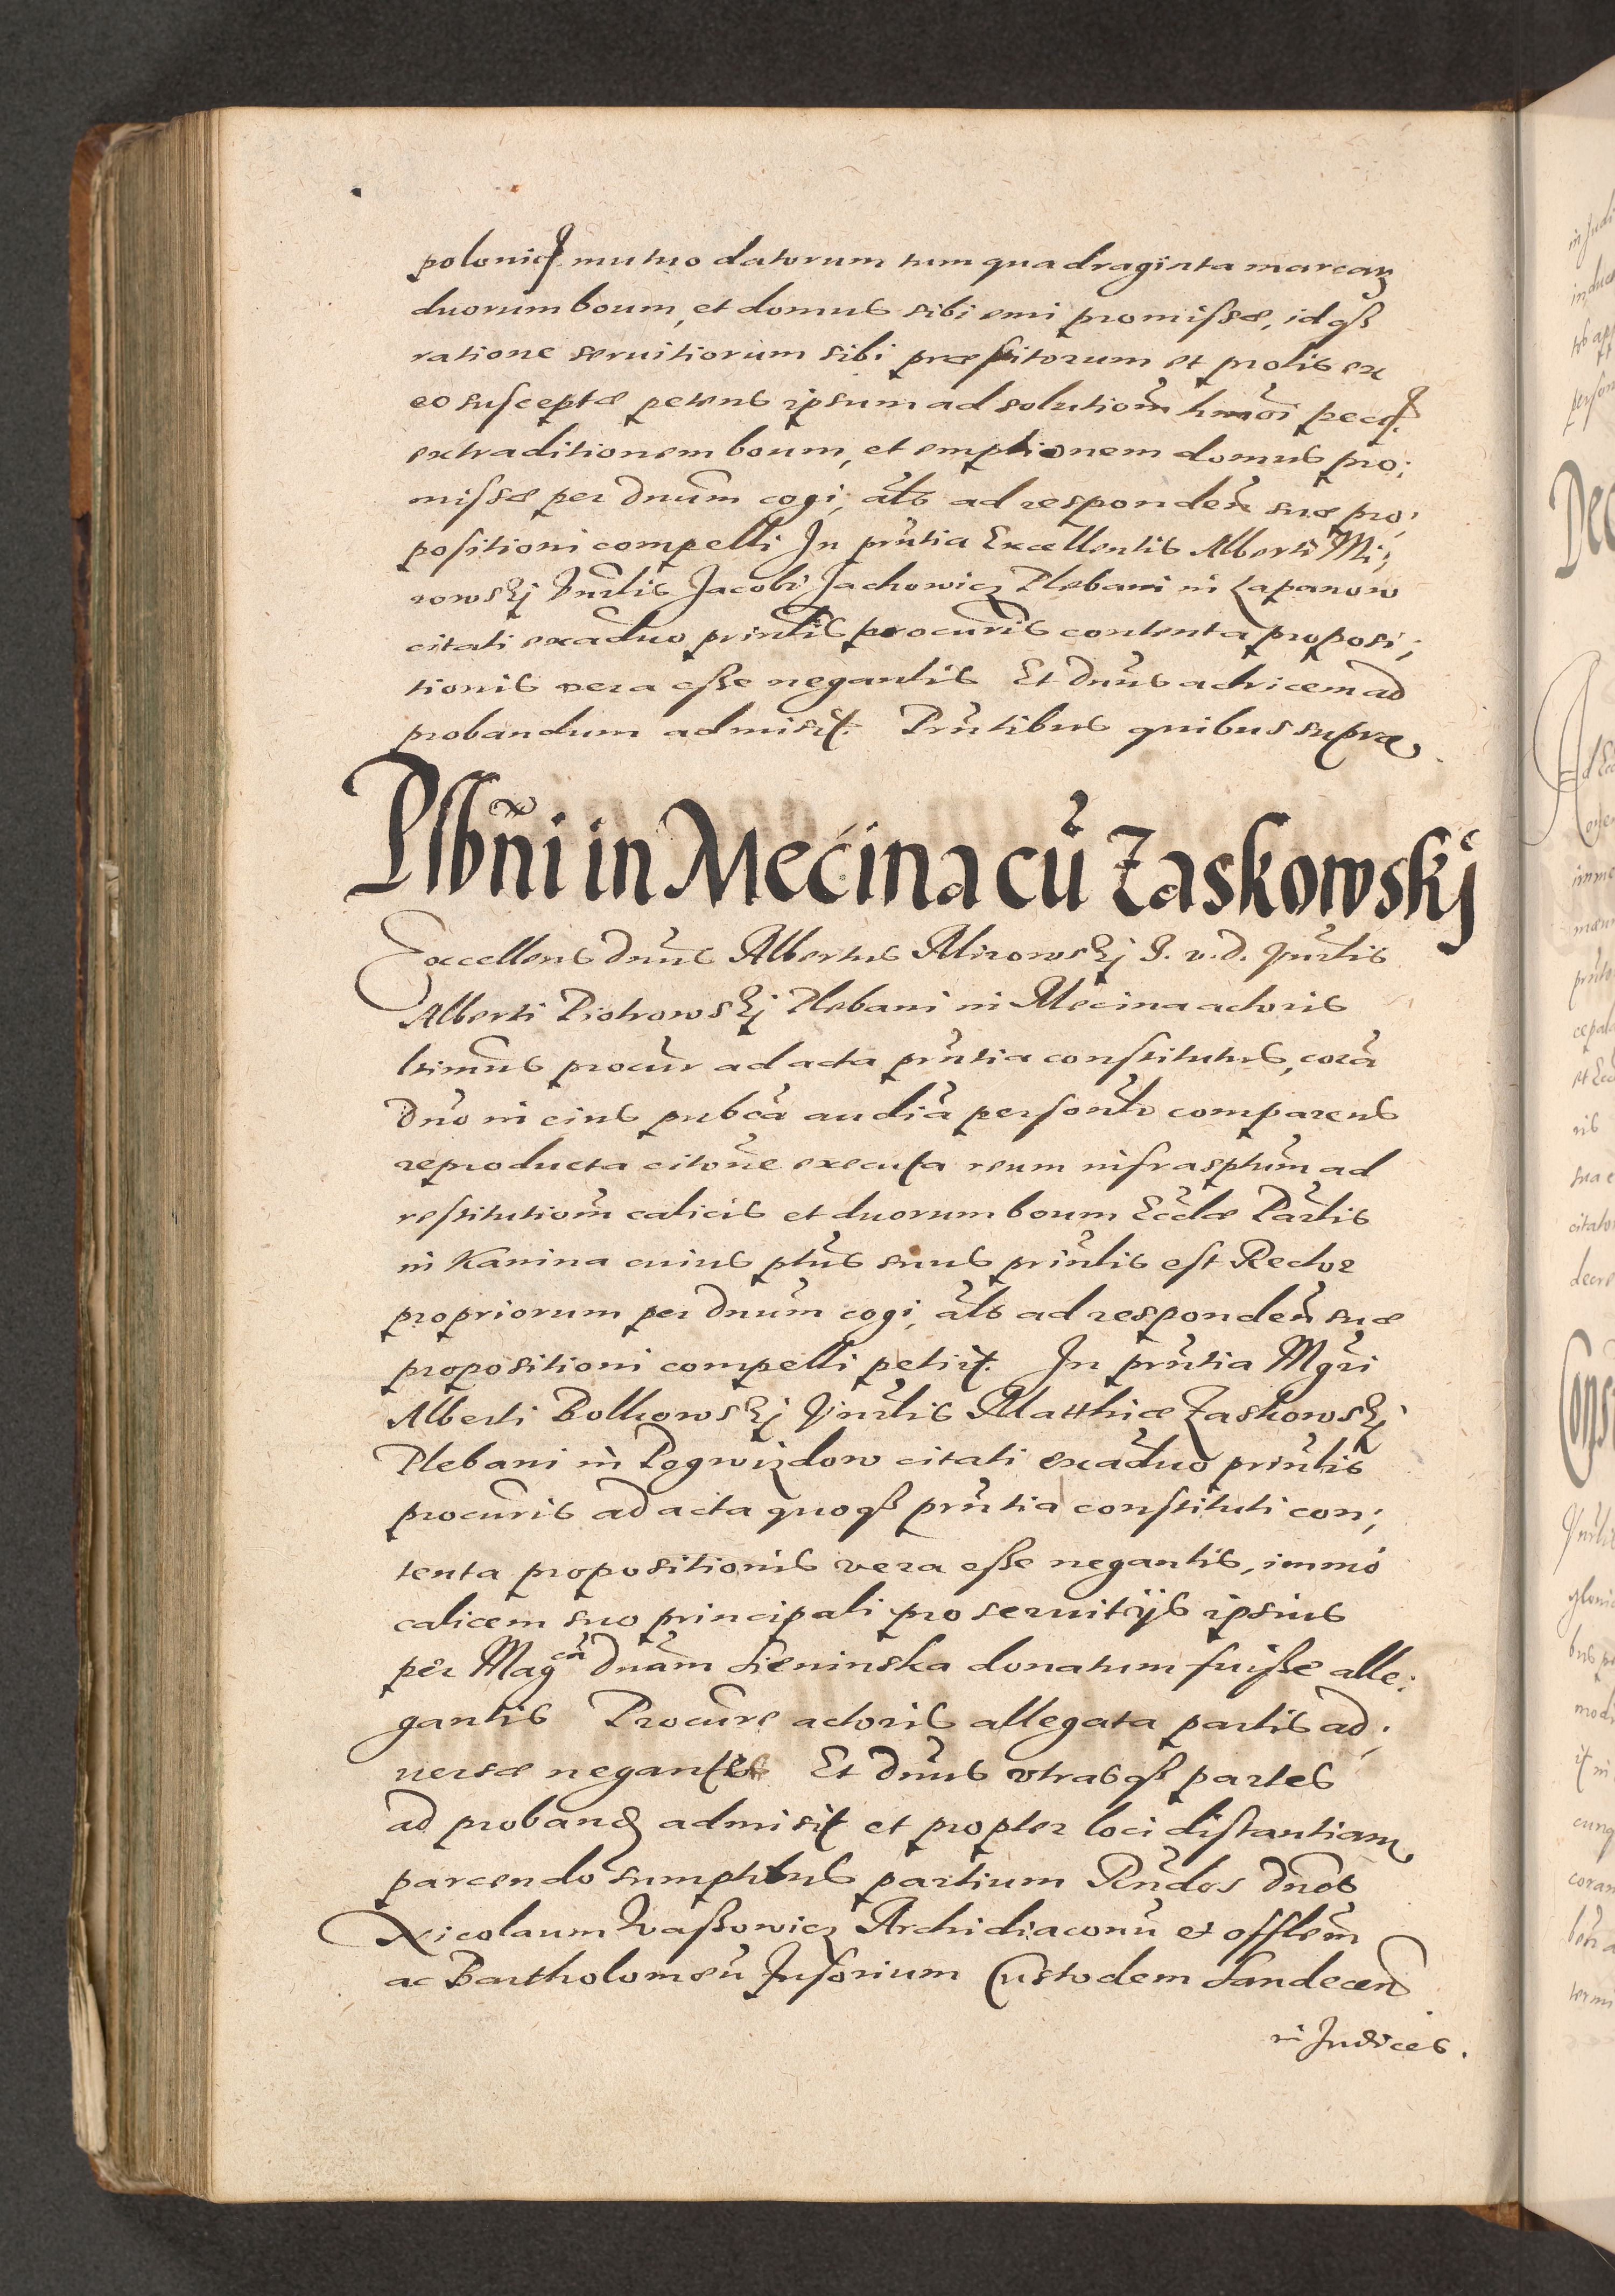 polonic mutuo datorum tum quadraginta marcarz
duorum boum, et domus sibi emi promissæ, idqз
ratione seruitiorum sibi præstitorum et prolis ex
eo susceptæ petens ipsum ad solutiom̃ hmõi pec
extraditionem boum, et emptionem domus pro:
missæ per Dnũm cogi, al̃s ad respondeñ suæ pro:
positioni compelli In pñtia Excellentis Alberti Mi:
rowskj Vñrlis Jacobi Jachowicz Plebani in Łapanow
citati ex aduõ prinl̃is procuris̃ contenta proposi:
tionis vera esse negantis Et Dnũs ad vicem ad
probandum admisit. Pñtibus quibus supra
Plbñi in Mećina cũ Zaskowskj
Excellens Dnũs Albertus Mirowskj J. v. D. Vñrlis
Alberti Piotrowskj Plebani in Mecina actoris
ltimũs procur̃ ad acta pñtia constitutus, corã
Dnõ in eius pubcã audiã personl̃r comparens
reproducta citoñe executa reum infrasptũm ad
restitutiom̃ calicis et duorum boum Eccl̃æ Par̃lis
in Kanina cuius pt̃us suus prinl̃is est Rector
propriorum per Dnũm cogi, al̃s ad respondeñ suæ
propositioni compelli petijt. In pñtia Mgr̃i
Alberti Bolkowskj Vñrlis Matthiæ Zaskowskj
Plebani in Pogwizdow citati ex aduõ prinl̃is
procuris̃ ad acta quoqз pñtia constituti con:
tenta propositionis vera esse negantis, immo
calicem suo principali pro seruitijs ipsius
per Magcã Dnãm Sieninska donatum fuisse alle:
gantis Procure actoris allegata partis ad:
uersæ negantes Et Dnũs vtrasqз partes
ad proband admisit et propter loci distantiam
parcendo sumptibus partium Rñdos Dnõs
Nicolaum Wassowicz Archidiaconũ et offlem̃
ac Bartholomeũ Jnsorium Custodem Sandeceñ
in Judices.